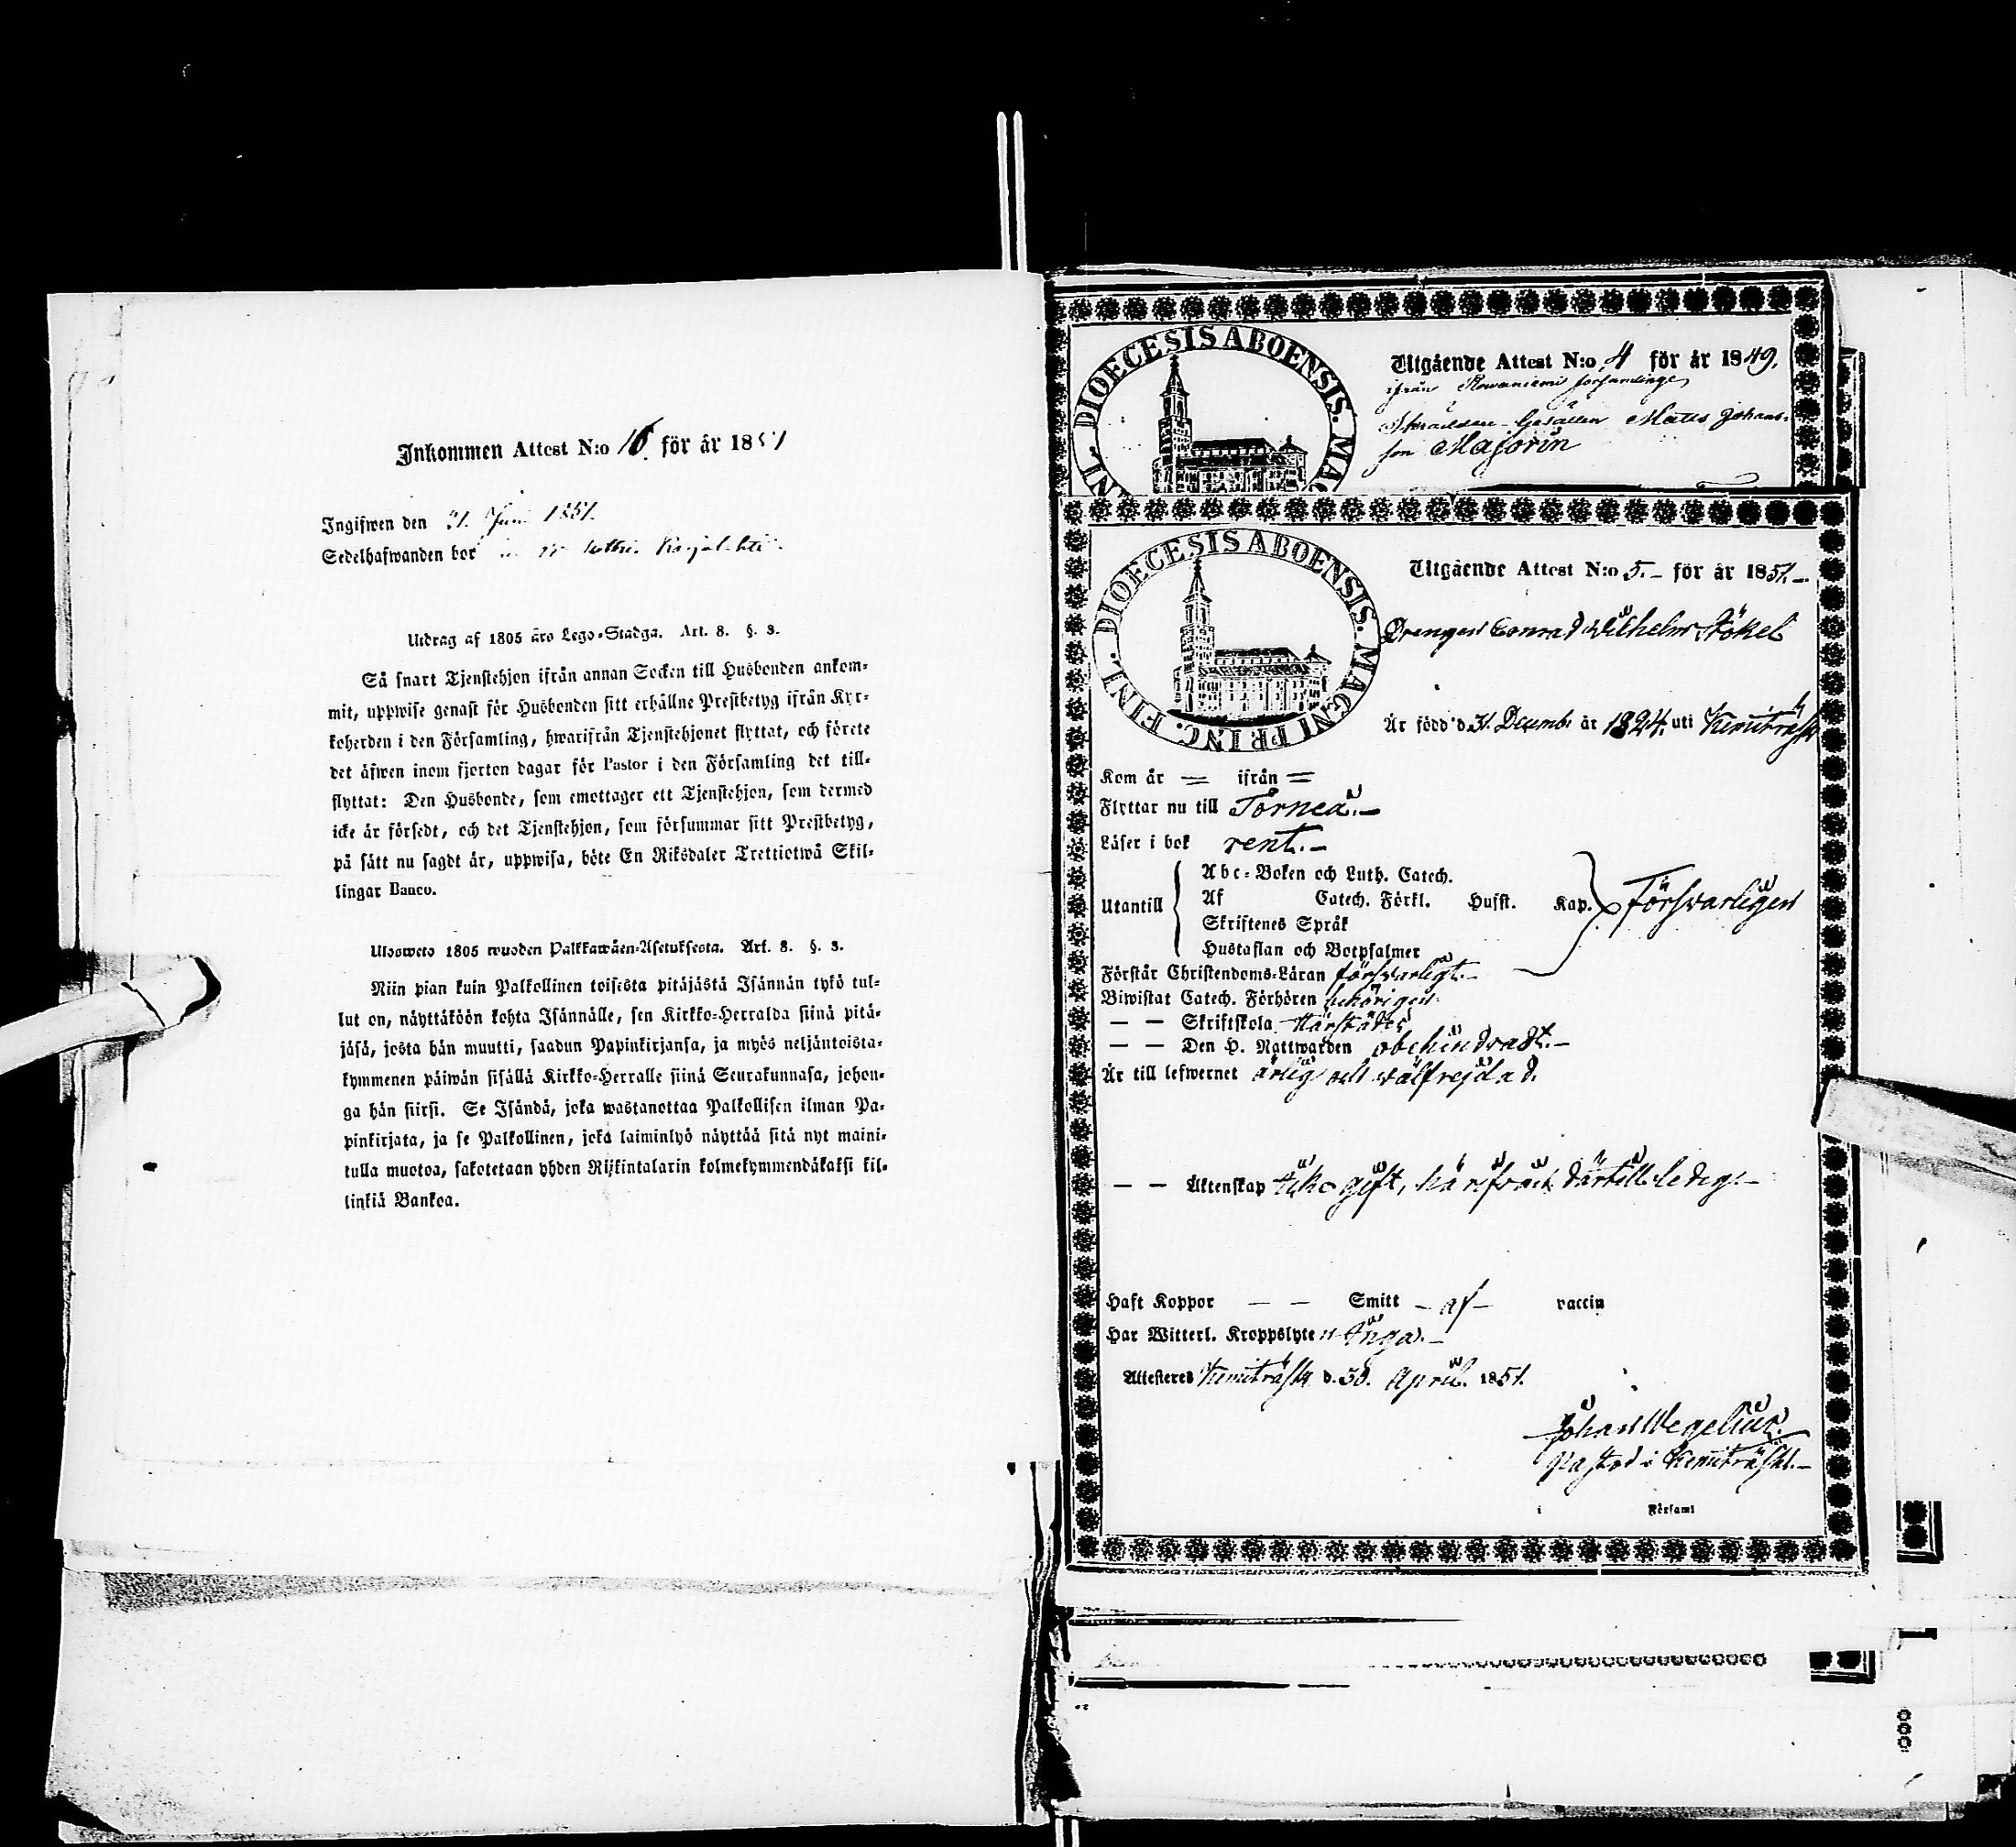 Inkommen Attest N:o 16 för år 1851
Ingifwen den 21. Juni 1851.
Sedelhafwanden bor
Utdrag af 1805 års Lego-Stadga. Art. 8. §. 3.
Så snart Tjenstehjon ifrån annan Socken till Husbonden ankom-
mit, uppwise genast för Husbonden sitt erhållne Prestbetyg ifrån Kyr-
koherden i den Församling, hwarifrån Tjenstehjonet flyttat, och förete
det äfwen inom fjorton dagar för Pastor i den Församling det till-
flyttat: Den Husbonde, som emottager ett Tjenstehjon, som dermed
icke är försedt, och det Tjenstehjon, som försummar sitt Prestbetyg,
på sätt nu sagdt är, uppwisa, böte En Riksdaler Trettiotwå Skil-
lingar Banco.
Ulosweto 1805 wuoden Palkkawäen-Asetuksesta. Art. 8. §. 3.
Niin pian kuin Palkollinen toisesta pitäjästä Isännän tykö tul-
lut on, näyttäköön kohta Isännälle, sen Kirkko-Herralda siinä pitä-
jäsä, josta hän muutti, saadun Papinkirjansa, ja myös neljäntoista-
kymmenen päiwän sisällä Kirkko-Herralle siinä Seurakunnasa, johon-
ga hän siirsi. Se Isändä, joka wastanottaa Palkollisen ilman Pa-
pinkirjata, ja se Palkollinen, joka laiminlyö näyttää sitä nyt maini-
tulla muotoa, sakotetaan yhden Rijkintalarin kolmekymmendäkaksi kil-
linkiä Bankoa.
DIOECESIS ABOENSIS. MAG
INI.
Utgående Attest N:o 4 för år 1849.
ifrån Rowaniemi församlinge
Skrädderi-Gesällen Matts Johans-
son Majorin
DIOECESIS ABOENSIS. MAGNI PRINC. FINL.
Utgående Attest N:o 5.- för år 1851.-
Drengen Conrad Wilhelm Stökel
Är född d 31. Decemb. år 1824. uti Kemiträsk
Kom år = ifrån =
Flyttar nu till Torneå.-
Läser i bok rent.-
Utantill
Abc-Boken och Luth. Catech.
Af Catech. Förkl. Husst. Kap. Försvarligen
Skriftenes Språk
Hustaflan och Botpsalmer
Förstår Christendoms-Läran försvarligt.-
Biwistat Catech. Förhören behörigen
— — Skriftskola Härstädes
— — Den H. Nattwarden obehindradt.-
Är till lefwernet ärlig och wälfrejdad.
— — Äktenskap icke gift, härifrån därtill ledig.-
Haft Koppor — — Smitt — af — vaccin
Har Witterl. Kroppslyten Inga.-
Attesteres Kemiträsk d. 30. April. 1851.
Johan Wegelius.
Pastor i Kemiträsk.-
i Församl